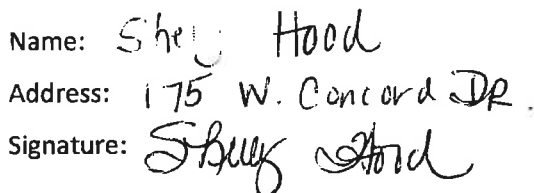 Name: Hood
Address: 175 W. Concord DR.
Signature: Hood